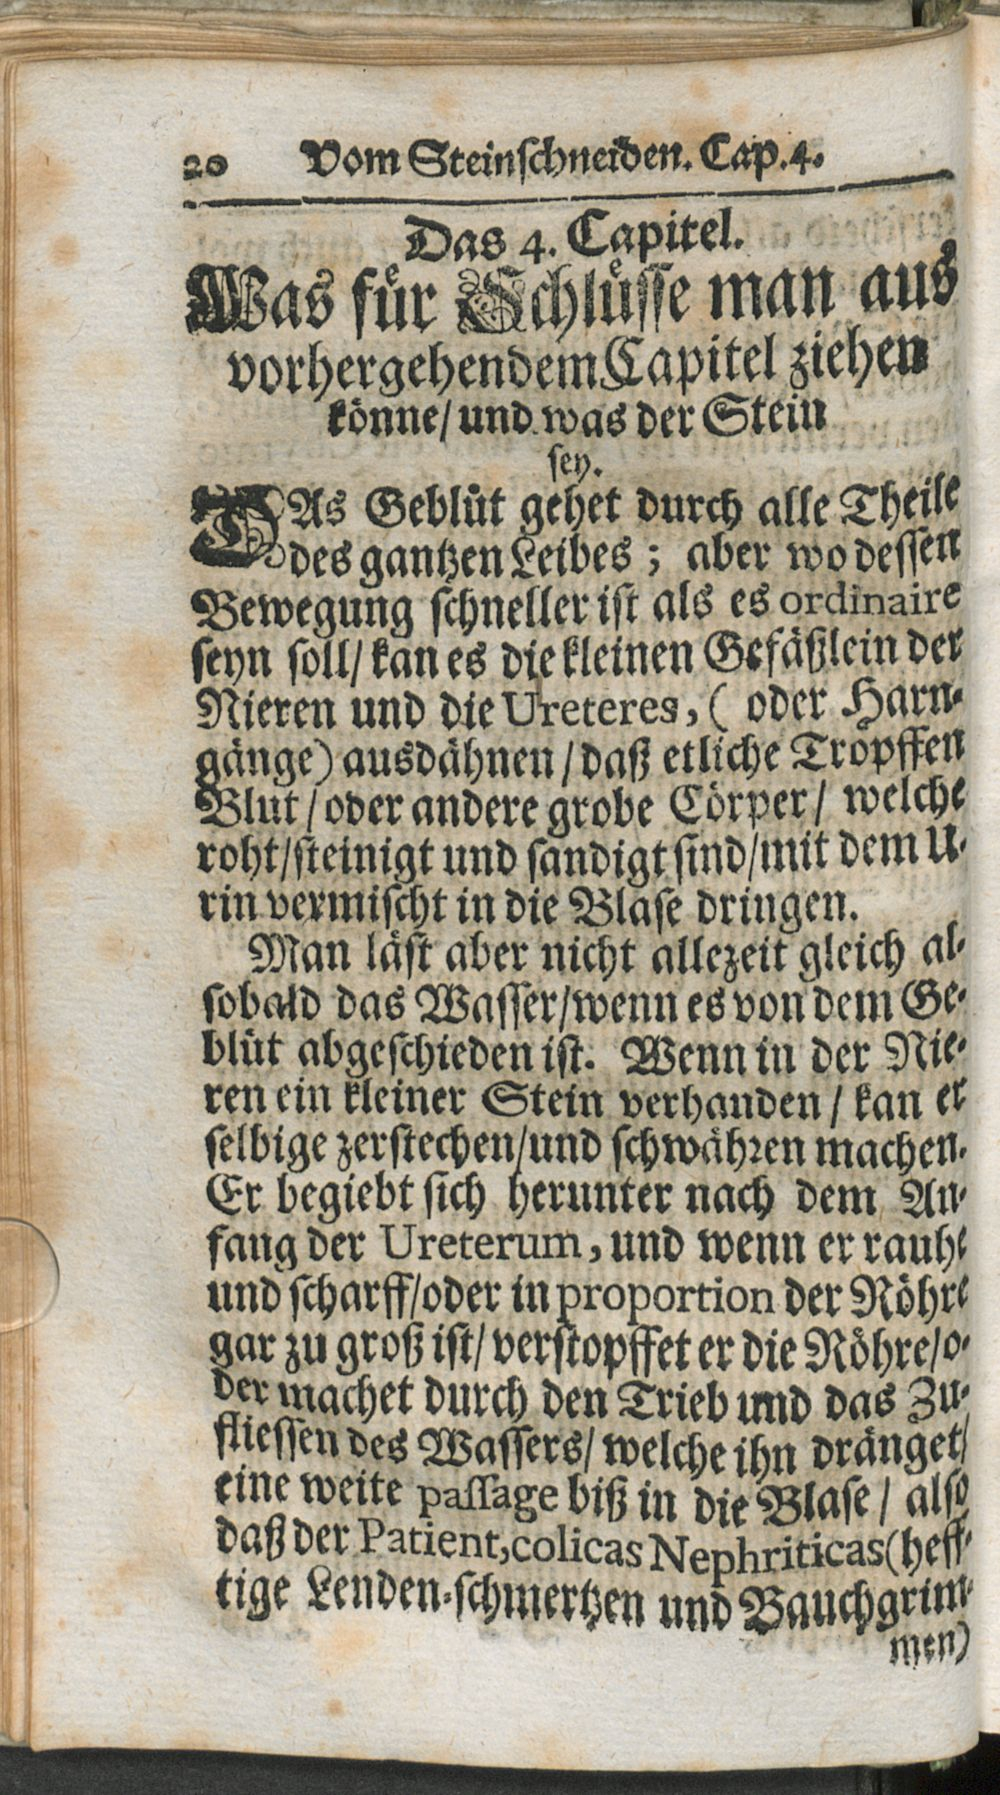 20 Vom Steinschneiden. Cap. 4.
Das 4. Capitel.
Was für Schlüsse man aus
vorhergehendem Capitel ziehen
könne/ und was der Stein
sey.
DAs Geblüt gehet durch alle Theile
des gantzen Leibes; aber wo dessen
Bewegung schneller ist als es ordinaire
seyn soll/ kan es die kleinen Gefäßlein der
Nieren und die Ureteres, (oder Harn-
gänge) ausdähnen/ daß etliche Tropffen
Blut/ oder andere grobe Cörper/ welche
roht/ steinigt und sandigt sind/ mit dem U-
rin vermischt in die Blase dringen.
Man läst aber nicht allezeit gleich al-
sobald das Wasser/ wenn es von dem Ge-
blüt abgeschieden ist. Wenn in der Nie-
ren ein kleiner Stein verhanden/ kan er
selbige zerstechen/ und schwähren machen.
Er begiebt sich herunter nach dem An-
fang der Ureterum, und wenn er rauhe
und scharff/ oder in proportion der Röhre
gar zu groß ist/ verstopffet er die Röhre/ o-
der machet durch den Trieb und das Zu-
fliessen des Wassers/ welche ihn dränget/
eine weite passage biß in die Blase/ also
daß der Patient, colicas Nephriticas (heff-
tige Lenden-schmertzen und Bauchgrim-
men)